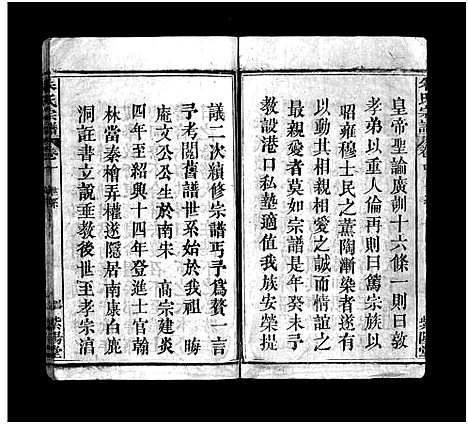 皇帝聖諭廣訓十六條一則曰敦
孝弟以重人倫再則曰篤宗族以
昭雍穆士民之薰陶漸染者遂有
以動其相親相愛之誠而情誼之
最親愛者莫如宗譜是年癸未予
教設港口私塾適值我族安榮提
議二次續修宗譜丐予爲贅一言
予考閱舊譜世系始於我祖 晦
庵文公公生於南宋 高宗建炎
四年至紹興十四年登進士官翰
林當秦檜弄權遂隱居南康白鹿
洞註書立說垂教後世至孝宗淯
氏宗譜
卷
紫陽堂